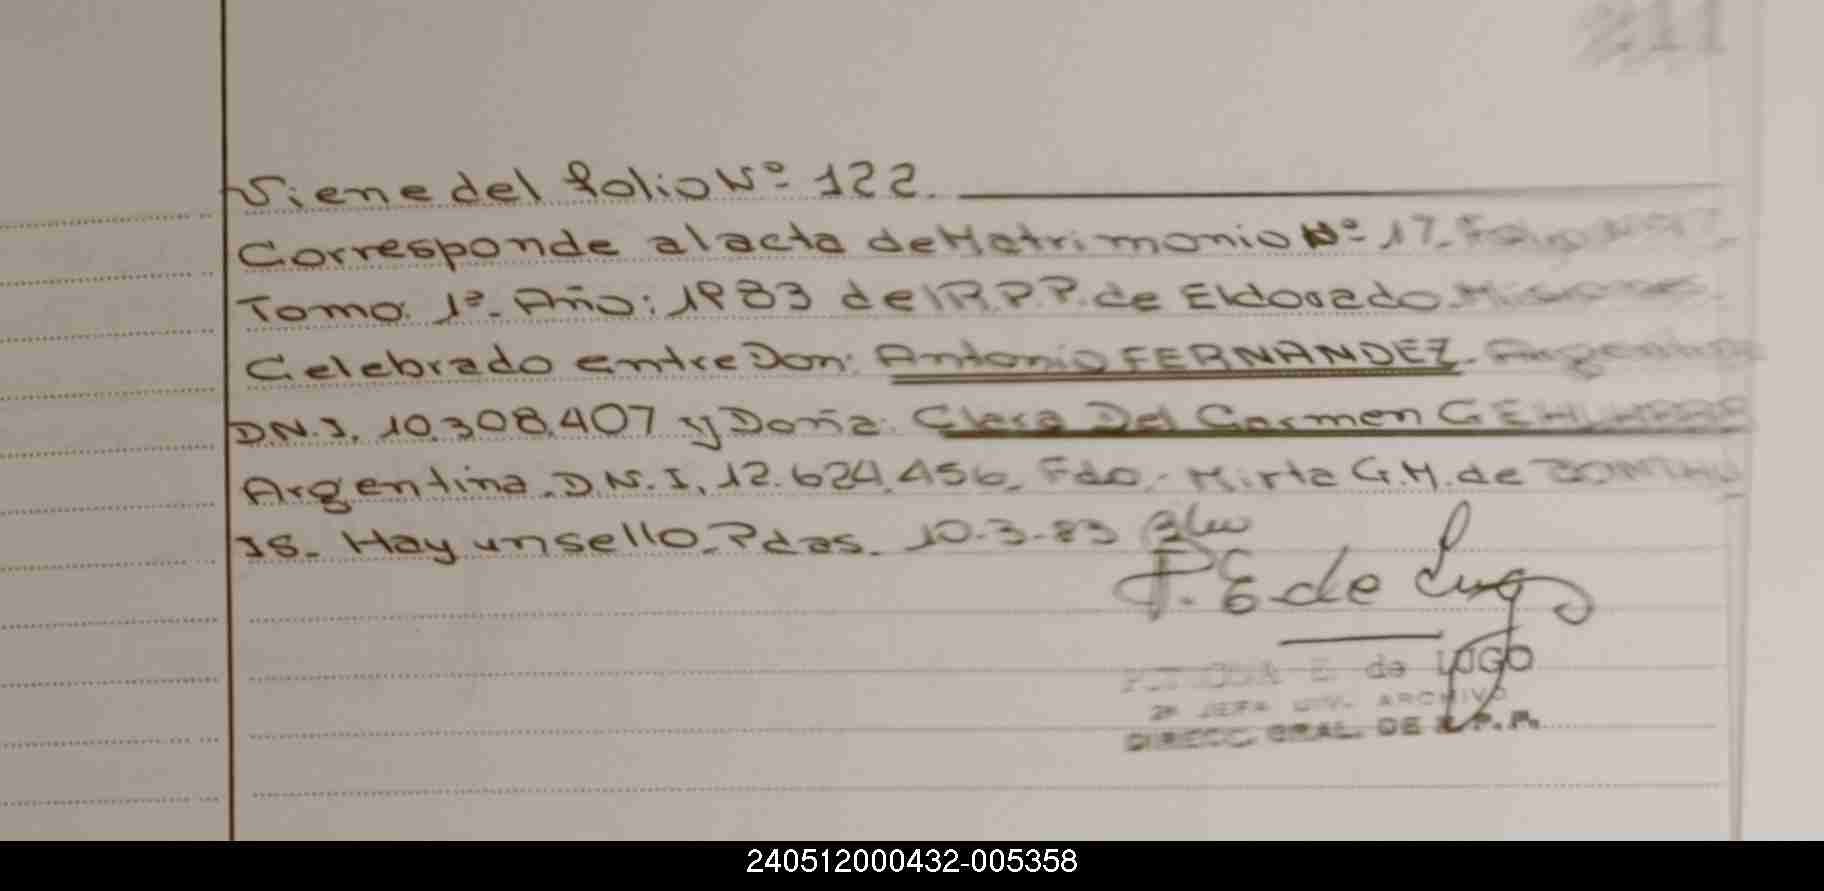 211
Viene del folio Nº 122.
Corresponde al acta de Matrimonio Nº 17.
Tomo: 1º. Año: 1983 del R.P.P. de Eldorado Misiones.
Celebrado entre Don: Antonio FERNANDEZ. Argentino
D.N.I. 10.308.407 y Doña: Clara Del Carmen
Argentina. D.N.I. 12.624.456. Fdo.- Mirta G.M. de
IS. Hay un sello. Pdas. 10-3-83
P. E de Lugo
E de LUGO
2º JEFA DIV. ARCHIVO
DIRECC. GRAL. DE R.P.P.
240512000432-005358